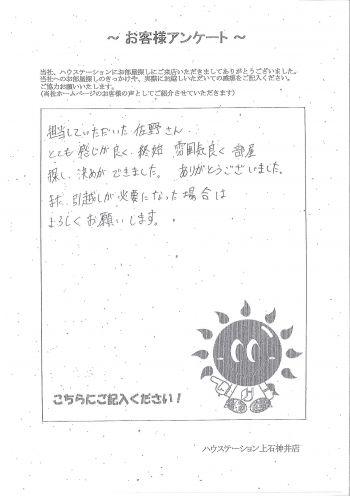 ～ お客様アンケート ～
当社、ハウステーションにお部屋探しにご来店いただきましてありがとうございました。
当社へのお部屋探しのきっかけや、実際にお越しいただいての感想をご記入ください。
ご協力お願いいたします。
(当社ホームページのお客様の声としてご紹介させていただきます)
担当していただいた佐野さん、
とても感じが良く、終始 雰囲気良く 部屋
探し、決めができました。 ありがとうございました。
また、引越しが必要になった場合は
よろしくお願いします。
こちらにご記入ください!
ハウステーション上石神井店